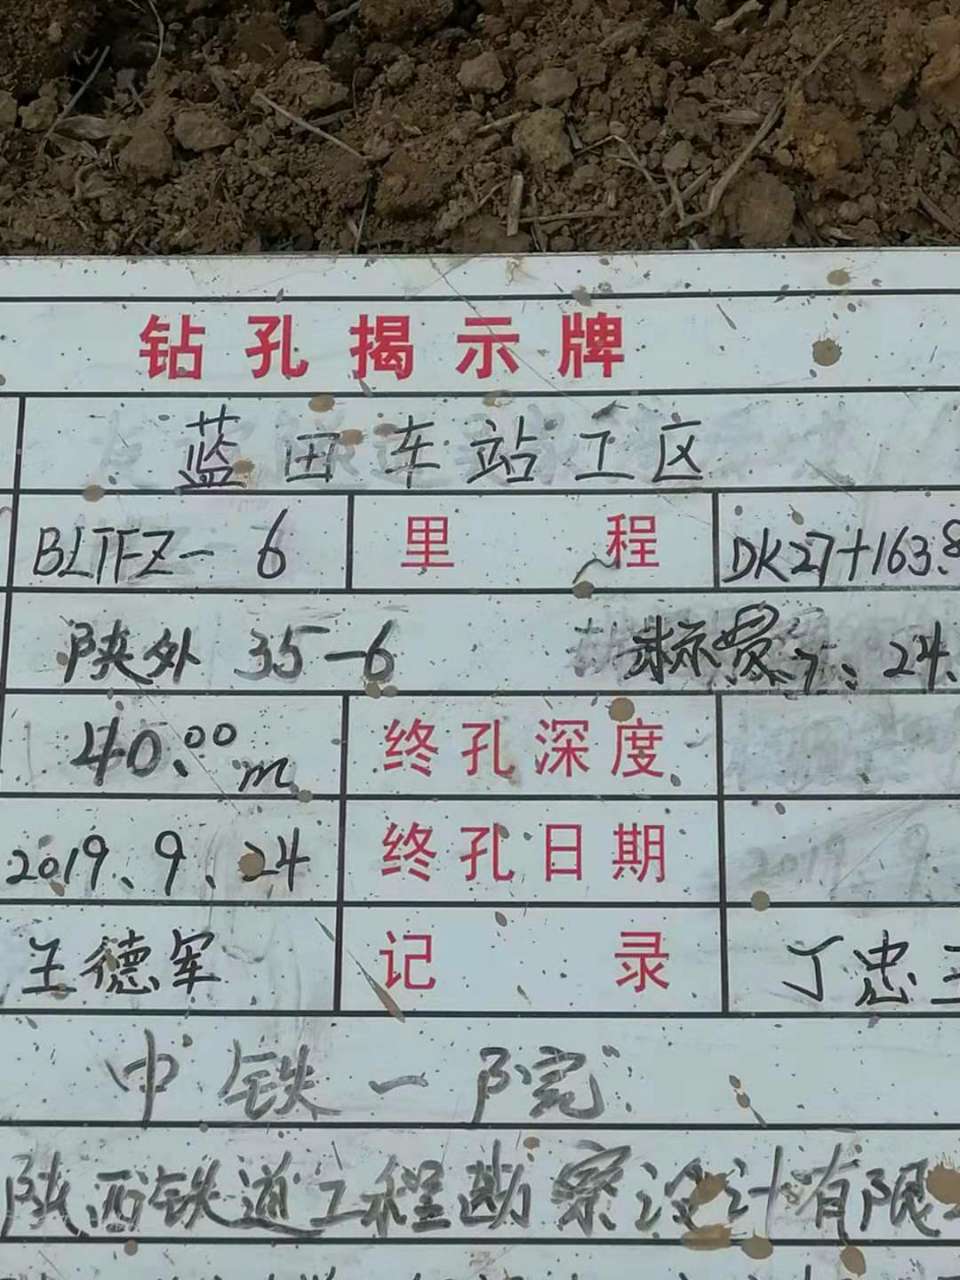 钻孔揭示牌
蓝田车站工区
BLTFZ-6 里程 DK27+163.8
陕外 35-6 24.
40.00m 终孔深度
2019.9.24 终孔日期 2019.9
王德军 记录 丁忠
中铁一院
陕西铁道工程勘察设计有限